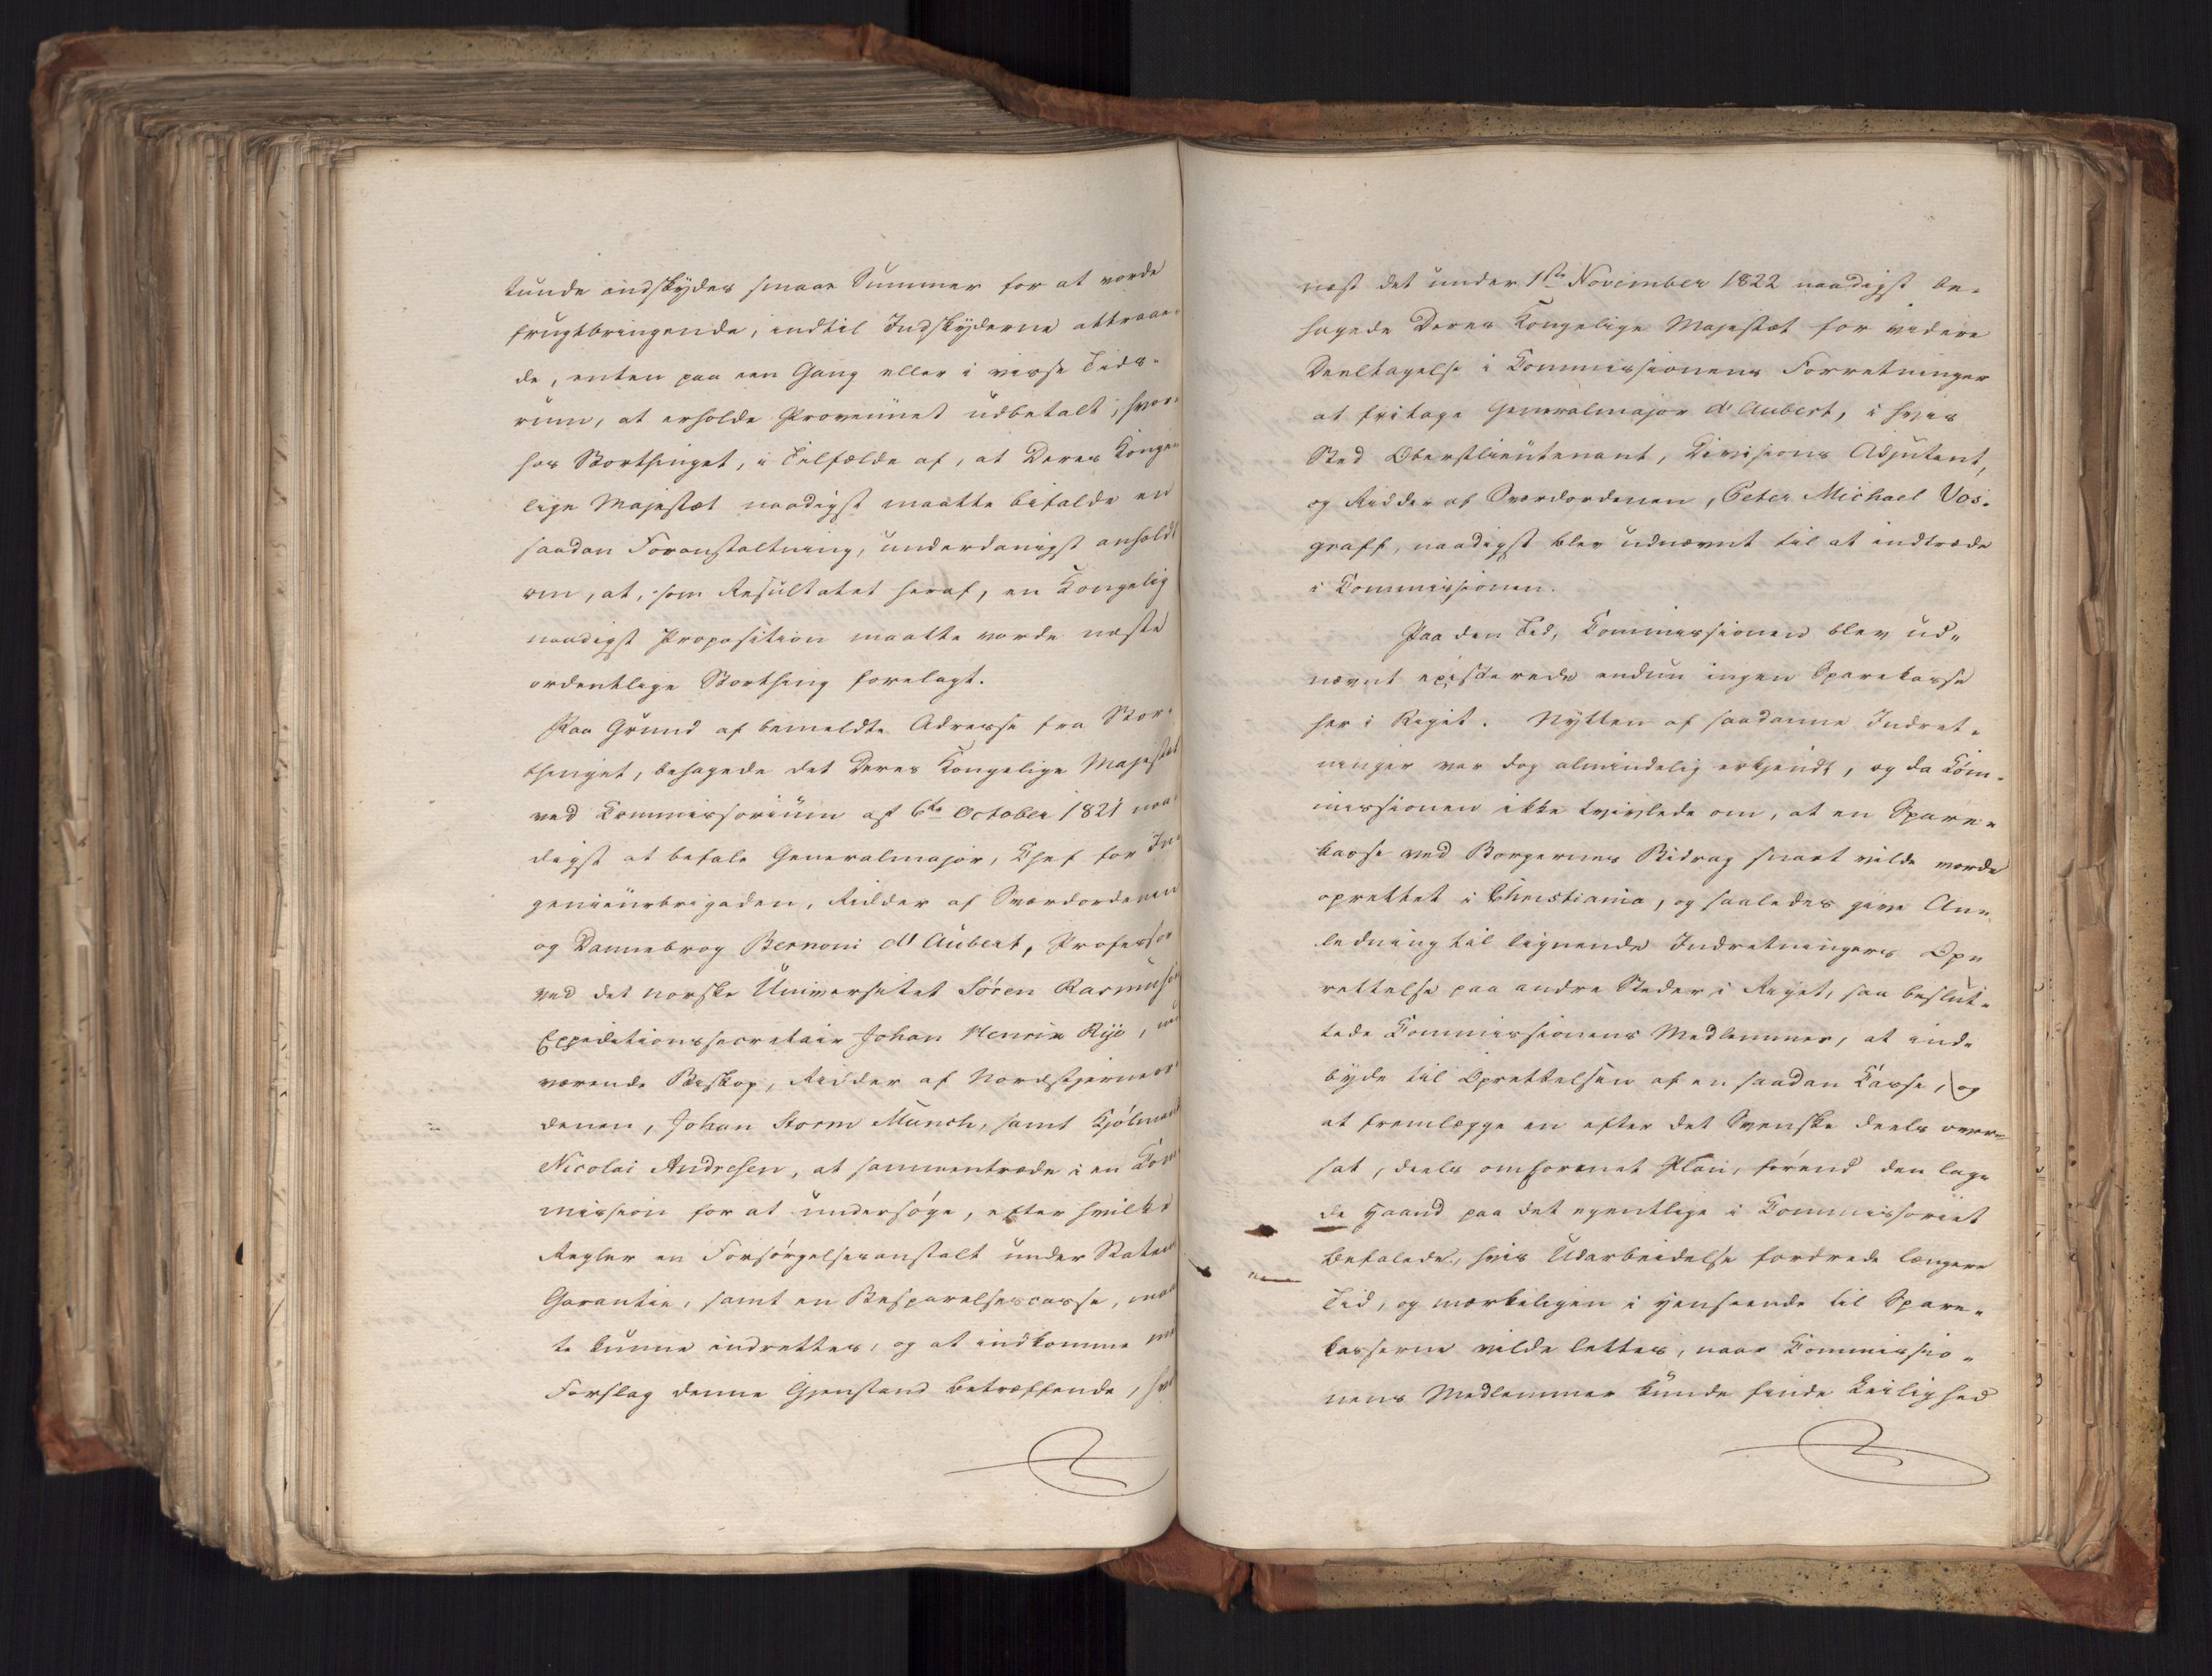 kunde indskydes smaae Summer for at vorde
frugtbringende, indtil Indskyderne attraae-
de, enten paa een Gang eller i visse Tids-
rum, at erholde Provenuet udbetalt; hvor-
hos Storthinget, i Tilfælde af, at Deres Konge-
lige Majestæt naadigst maatte bifalde en
saadan Foranstaltning, underdanigst anholdt
om, at, som Resultatet heraf, en Kongelig
naadigst Proposition maatte vorde næste
ordentlige Storthing forelagt.
Paa Grund af bemeldte Adresse fra Stor-
thinget, behagede det Deres Kongelige Majestæt
ved Commissorium af 6te October 1821 naa-
digst at befale Generalmajor, Chef for In-
genieurbrigaden, Ridder af Sværdordenen
og Dannebrog Bernoni d'Aubert, Professor
ved det norske Universitet Sören Rasmusen
Expeditionssecretair Johan Henrik Rye, nu
værende Biskop, Ridder af Nordstjerneor-
denen, Johan Storm Munch, samt Kjöbmand
Nicolai Andresen, at sammentræde i en Com-
mission for at undersöge, efter hvilke
Regler en Forsörgelsesanstalt under Statens
Garantie, samt en Besparelsescasse, maat-
te kunne indrettes, og at indkomme med
Forslag denne Gjenstand betræffende, hvor-
næst det under 1ste November 1822 naadigst be-
hagede Deres Kongelige Majestæt for videre
Deeltagelse i Commissionens Forretninger
at fritage Generalmajor d'Aubert, i hvis
Sted Oberstlieutenant, Divisions Adjutant,
og Ridder af Sværdordenen, Peter Michael Vos-
graff, naadigst blev udnævnt til at indtræde
i Commissionen.
Paa den Tid, Commissionen blev ud-
nævnt existerede endnu ingen Sparekasse
her i Riget. Nytten af saadanne Indret-
ninger var dog almindelig erkjendt, og da Com-
missionen ikke tvivlede om, at en Spare-
kasse ved Borgernes Bidrag snart vilde vorde
oprettet i Christiania, og saaledes give An-
ledning til lignende Indretningers Op-
rettelse paa andre Steder i Riget, saa beslut-
tede Commissionens Medlemmer, at ind-
byde til Oprettelsen af en saadan Casse, og
at fremlægge en efter det Svenske deels over-
sat, deels omformet Plan, förend den lag-
de Haand paa det egentlige i Commissoriet
befalede, hvis Udarbeidelse fordrede længere
Tid, og mærkeligen i Henseende til Spare-
kasserne vilde lettes, naar Commissio-
nens Medlemmer kunde finde Leilighed